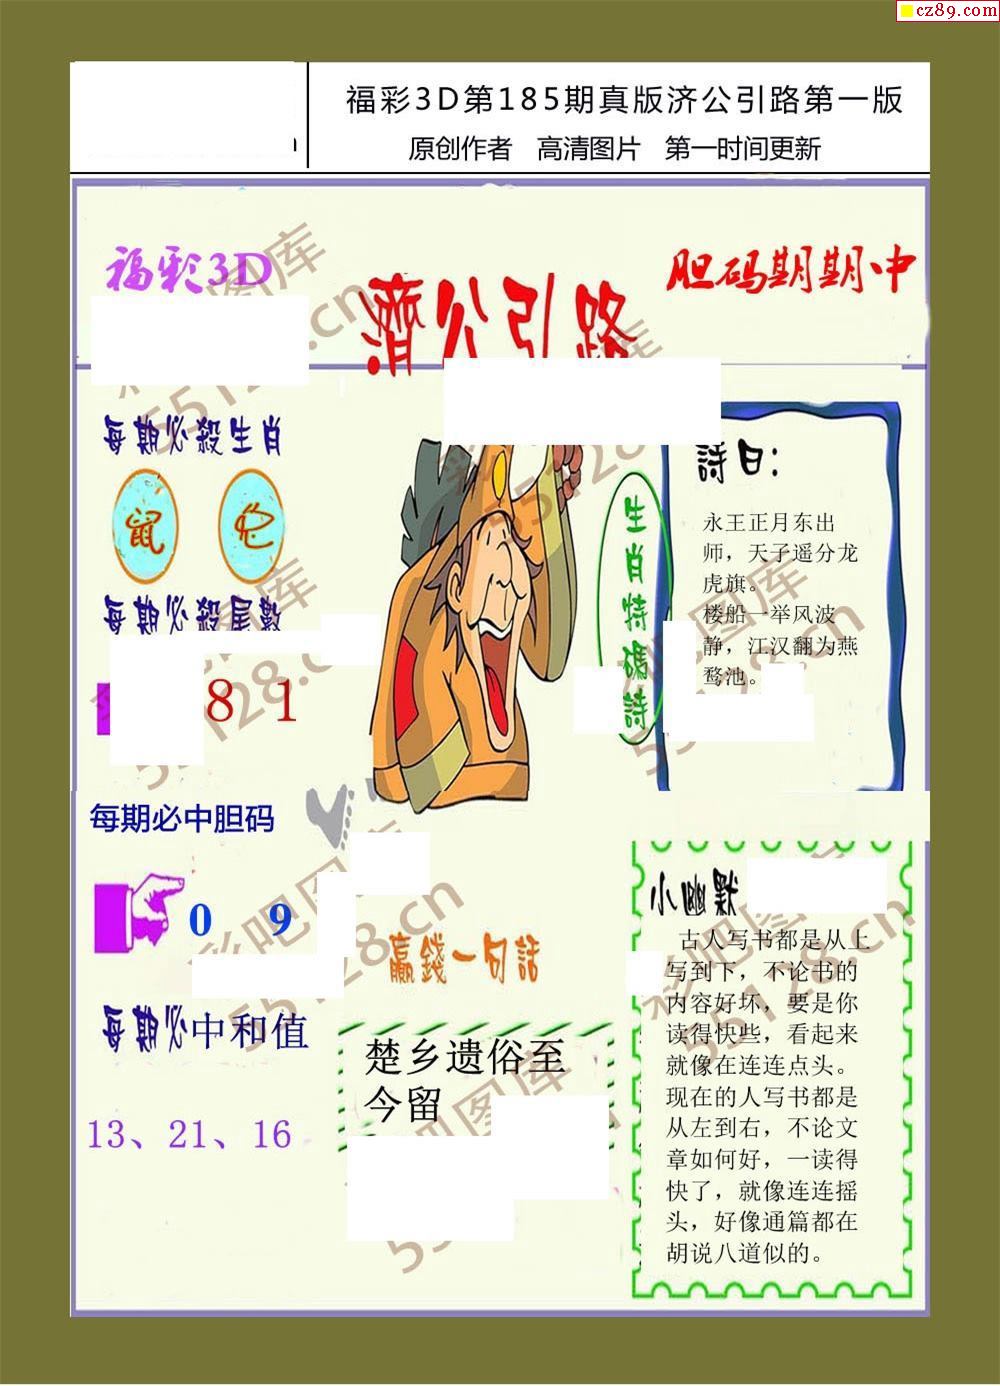 cz89.com
福彩3D第185期真版济公引路第一版
原创作者 高清图片 第一时间更新
福彩3D
濟公引路
胆码期期中
每期必殺生肖
鼠 蛇
每期必殺尾數
8 1
每期必中胆码
0 9
每期必中和值
13、21、16
生肖特碼詩
贏錢一句話
楚乡遗俗至
今留
詩曰:
永王正月东出
师，天子遥分龙
虎旗。
楼船一举风波
静，江汉翻为燕
鹜池。
小幽默
古人写书都是从上
写到下，不论书的
内容好坏，要是你
读得快些，看起来
就像在连连点头。
现在的人写书都是
从左到右，不论文
章如何好，一读得
快了，就像连连摇
头，好像通篇都在
胡说八道似的。
彩吧图库
55128.cn